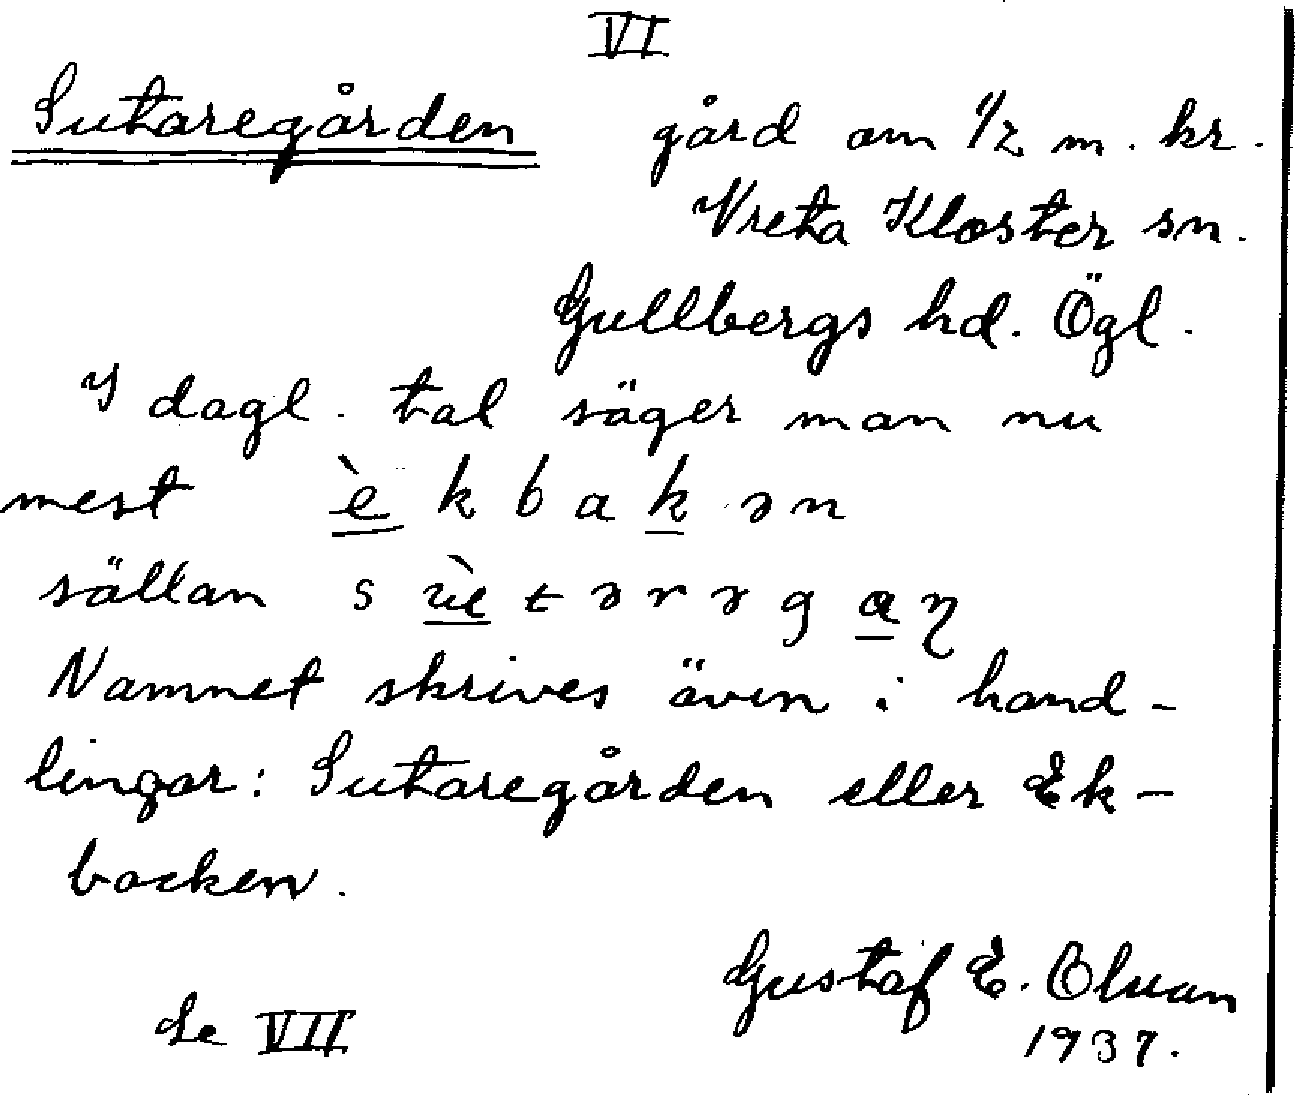 VI
Sutaregården gård om 1/2 m. kr.
Vreta Kloster sn.
Gullbergs hd. Ögl.
I dagl. tal säger man nu
mest è k b a k ə n
sällan s ùe t ə r ə g a η
Namnet skrives även i hand-
lingar: Sutaregården eller Ek-
backen.
Gustaf E.
Se VII 1937.